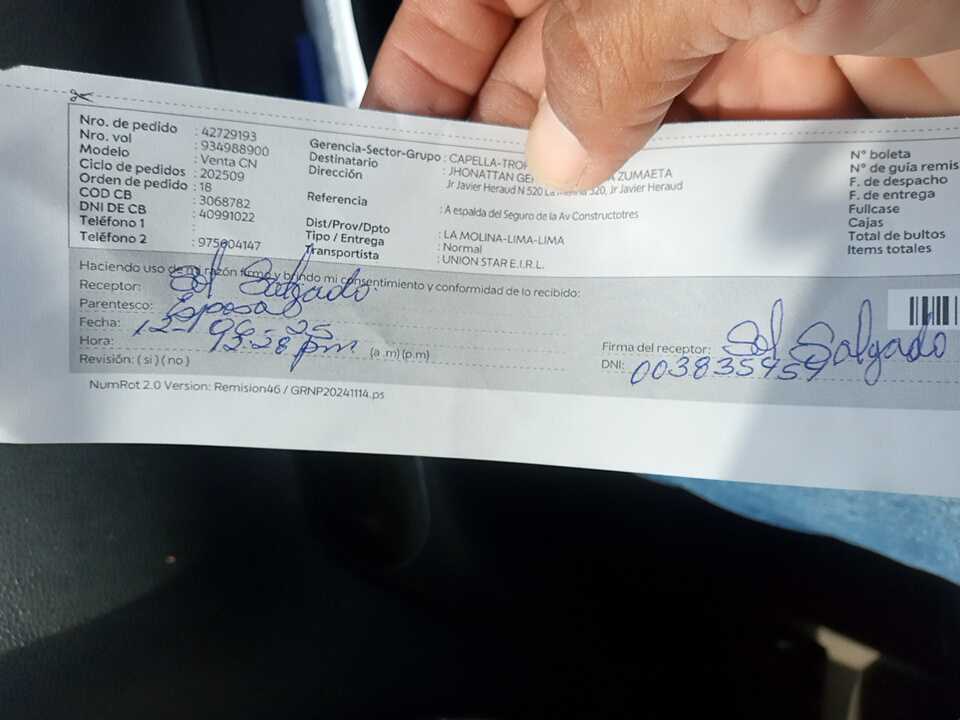 Nro. de pedido : 42729193
Nro. vol : 934988900
Modelo : Venta CN
Ciclo de pedidos : 202509
Orden de pedido : 18
COD CB : 3068782
DNI DE CB : 40991022
Teléfono 1 :
Teléfono 2 : 975004147
Gerencia-Sector-Grupo : CAPELLA-TROP
Destinatario : JHONATTAN ZUMAETA
Dirección Jr Javier Heraud N 520 La 520, Jr Javier Heraud
Referencia : A espalda del Seguro de la Av Constructotres
Dist/Prov/Dpto : LA MOLINA-LIMA-LIMA
Tipo / Entrega : Normal
Transportista : UNION STAR E.I.R.L.
N° boleta
N° de guía remis
F. de despacho
F. de entrega
Fullcase
Cajas
Total de bultos
Items totales
Haciendo uso de mi razón firmo y brindo mi consentimiento y conformidad de lo recibido:
Receptor: Sol Salgado
Parentesco: Esposa
Fecha: 12-06-25
Hora: :28 pm (a .m) (p.m)
Revisión: ( si ) ( no )
Firma del receptor: Sol Salgado
DNI: 003835959
NumRot 2.0 Version: Remision46 / GRNP20241114.ps